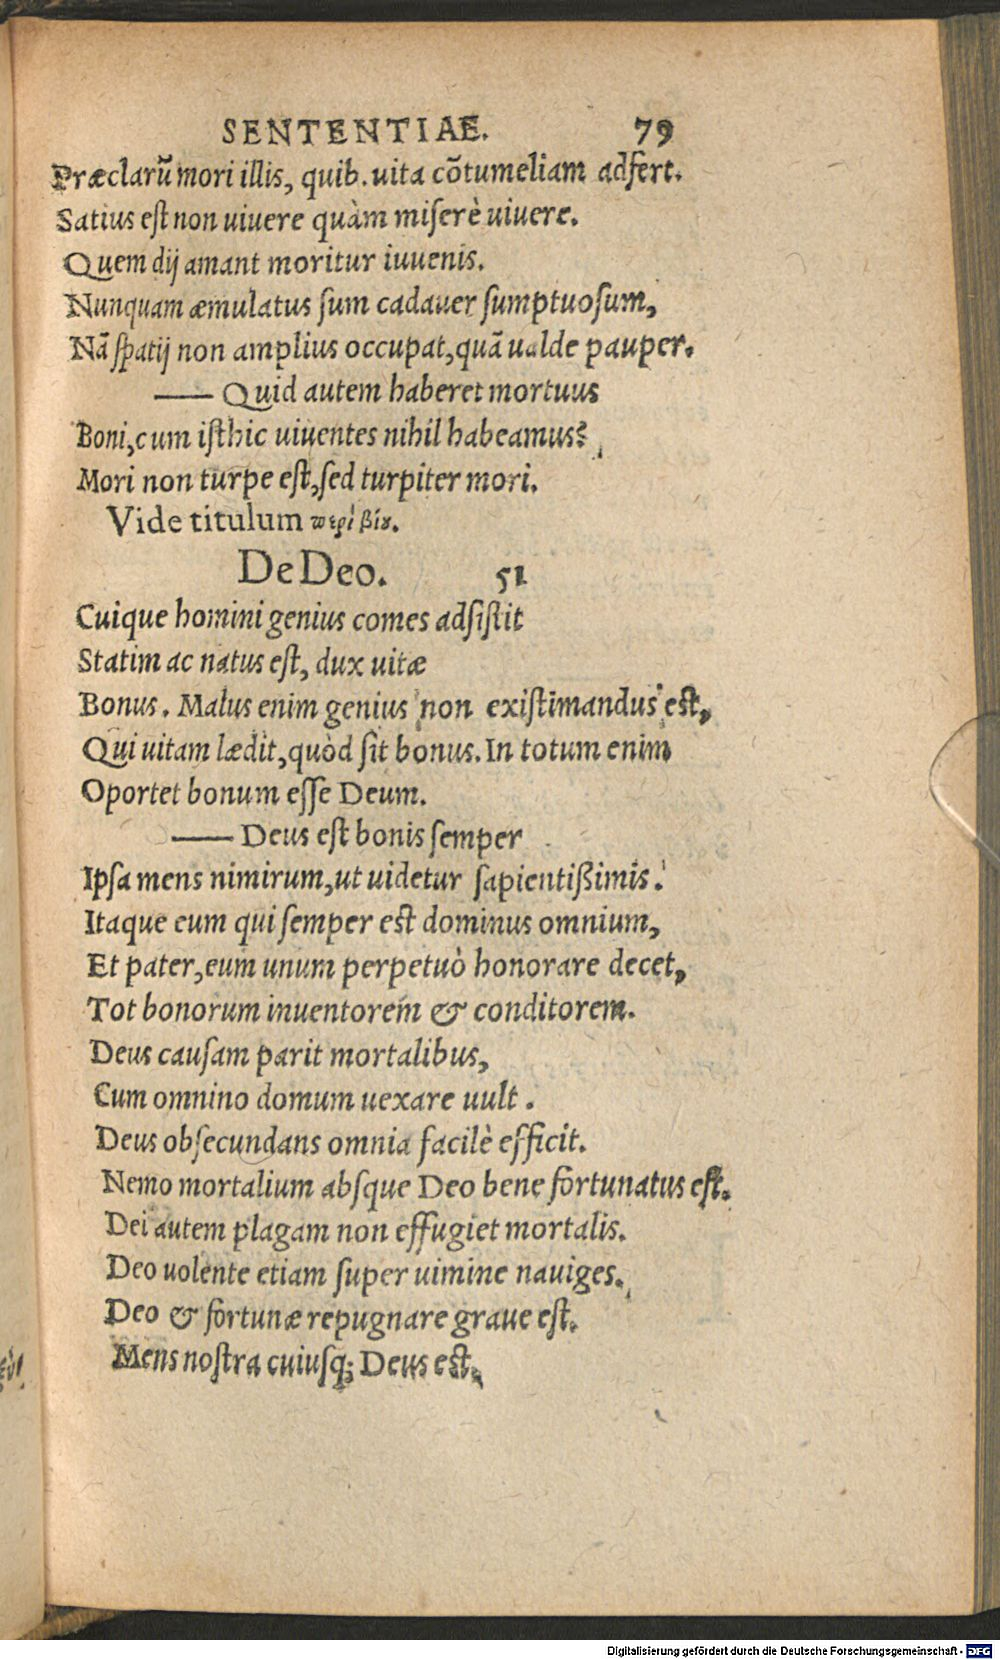 SENTENTIAE. 79
Præclarũ mori illis, quib. uita cõtumeliam adfert.
Satius est non uiuere quàm miserè uiuere.
Quem dij amant moritur iuuenis.
Nunquam æmulatus sum cadauer sumptuosum,
Nã spatij non amplius occupat, quã ualde pauper.
—— Quid autem haberet mortuus
Boni, cum isthic uiuentes nihil habeamus?
Mori non turpe est, sed turpiter mori.
Vide titulum περὶ βίου.
De Deo. 51
Cuique homini genius comes adsistit
Statim ac natus est, dux uitæ
Bonus. Malus enim genius non existimandus est,
Qui uitam lædit, quòd sit bonus. In totum enim
Oportet bonum esse Deum.
—— Deus est bonis semper
Ipsa mens nimirum, ut uidetur sapientißimis.
Itaque eum qui semper est dominus omnium,
Et pater, eum unum perpetuò honorare decet,
Tot bonorum inuentorem & conditorem.
Deus causam parit mortalibus,
Cum omnino domum uexare uult.
Deus obsecundans omnia facilè efficit.
Nemo mortalium absque Deo bene fortunatus est.
Dei autem plagam non effugiet mortalis.
Deo uolente etiam super uimine nauiges.
Deo & fortunæ repugnare graue est.
Mens nostra cuiusq; Deus est.
Digitalisierung gefördert durch die Deutsche Forschungsgemeinschaft - DFG